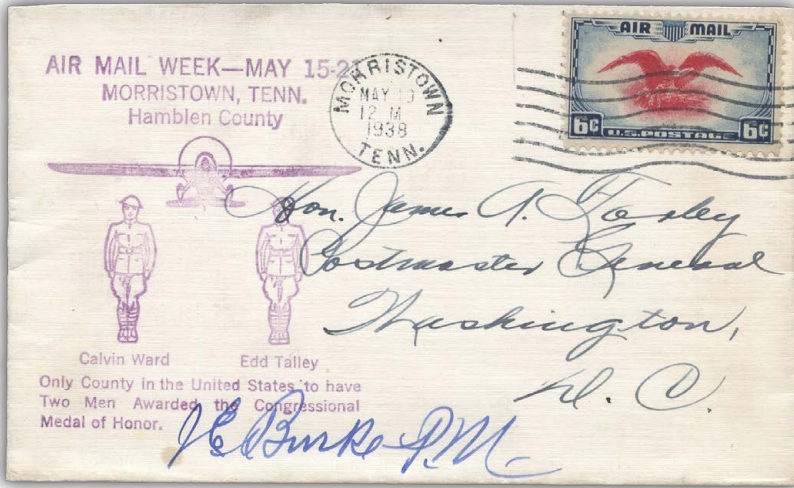 AIR MAIL WEEK—MAY 15-21
MORRISTOWN, TENN.
Hamblen County
MORRISTOWN
MAY 19
12 M
1938
TENN.
AIR MAIL
6¢ U.S. POSTAGE 6¢
Hon. James A. Farley
Postmaster General
Washington,
D. C.
Calvin Ward Edd Talley
Only County in the United States to have
Two Men Awarded the Congressional
Medal of Honor.
J E Burke P.M.